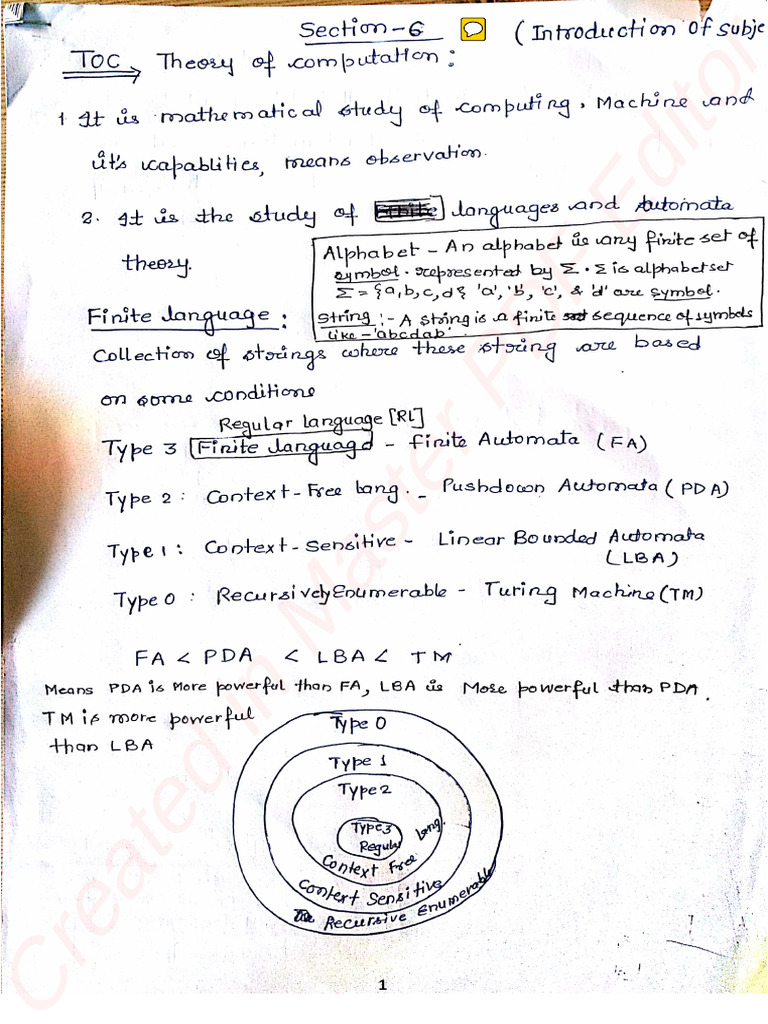 Section-6 (Introduction of Subje
TOC Theory of computation:
1 It is mathematical study of computing, Machine and
it's capablities, means observation.
2. It is the study of Finite languages and Automata
theory.
Alphabet - An alphabet is any finite set of
symbol. represented by Σ. Σ is alphabet set
Σ = {a,b,c,d} 'a', 'b', 'c', & 'd' are symbol.
String :- A string is a finite set sequence of symbols
like - 'abcdab'
Finite language :
Collection of strings where these string are based
on some conditions
Regular language [RL]
Type 3 Finite language - finite Automata (FA)
Type 2 : Context-Free lang. - Pushdown Automata (PDA)
Type 1 : Context-Sensitive - Linear Bounded Automata
(LBA)
Type 0 : Recursively Enumerable - Turing Machine (TM)
FA < PDA < LBA < TM
Means PDA is More powerful than FA, LBA is More powerful than PDA.
TM is more powerful
than LBA
Type 0
Type 1
Type 2
Type 3
Regular
Context Free Lang.
Context Sensitive
Recursive Enumerable
1
Created in Master PDF Editor